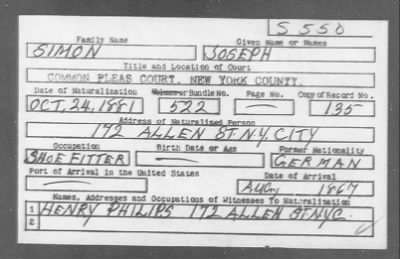 S 550
Family Name Given Name or Names
SIMON JOSEPH
Title and Location of Court
COMMON PLEAS COURT, NEW YORK COUNTY.
Date of Naturalization Volume or Bundle No. Page No. Copy of Record No.
OCT. 24, 1881 522 — 135
Address of Naturalized Person
172 ALLEN ST. N.Y. CITY
Occupation Birth Date or Age Former Nationality
SHOE FITTER — GERMAN
Port of Arrival in the United States Date of Arrival
— AUG, 1867
Names, Addresses and Occupations of Witnesses To Naturalization
1 HENRY PHILIPS 172 ALLEN ST. N.Y.C.
2